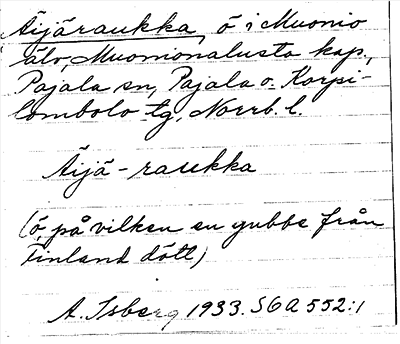 Äijäraukka, ö i Muonio
älv, Muonionalusta kap.,
Pajala sn, Pajala o. Korpi-
lombolo tg, Norrb. l.
Äijä-raukka
(ö, på vilken en gubbe från
Finland dött)
A. Isberg 1933. SOA 552:1